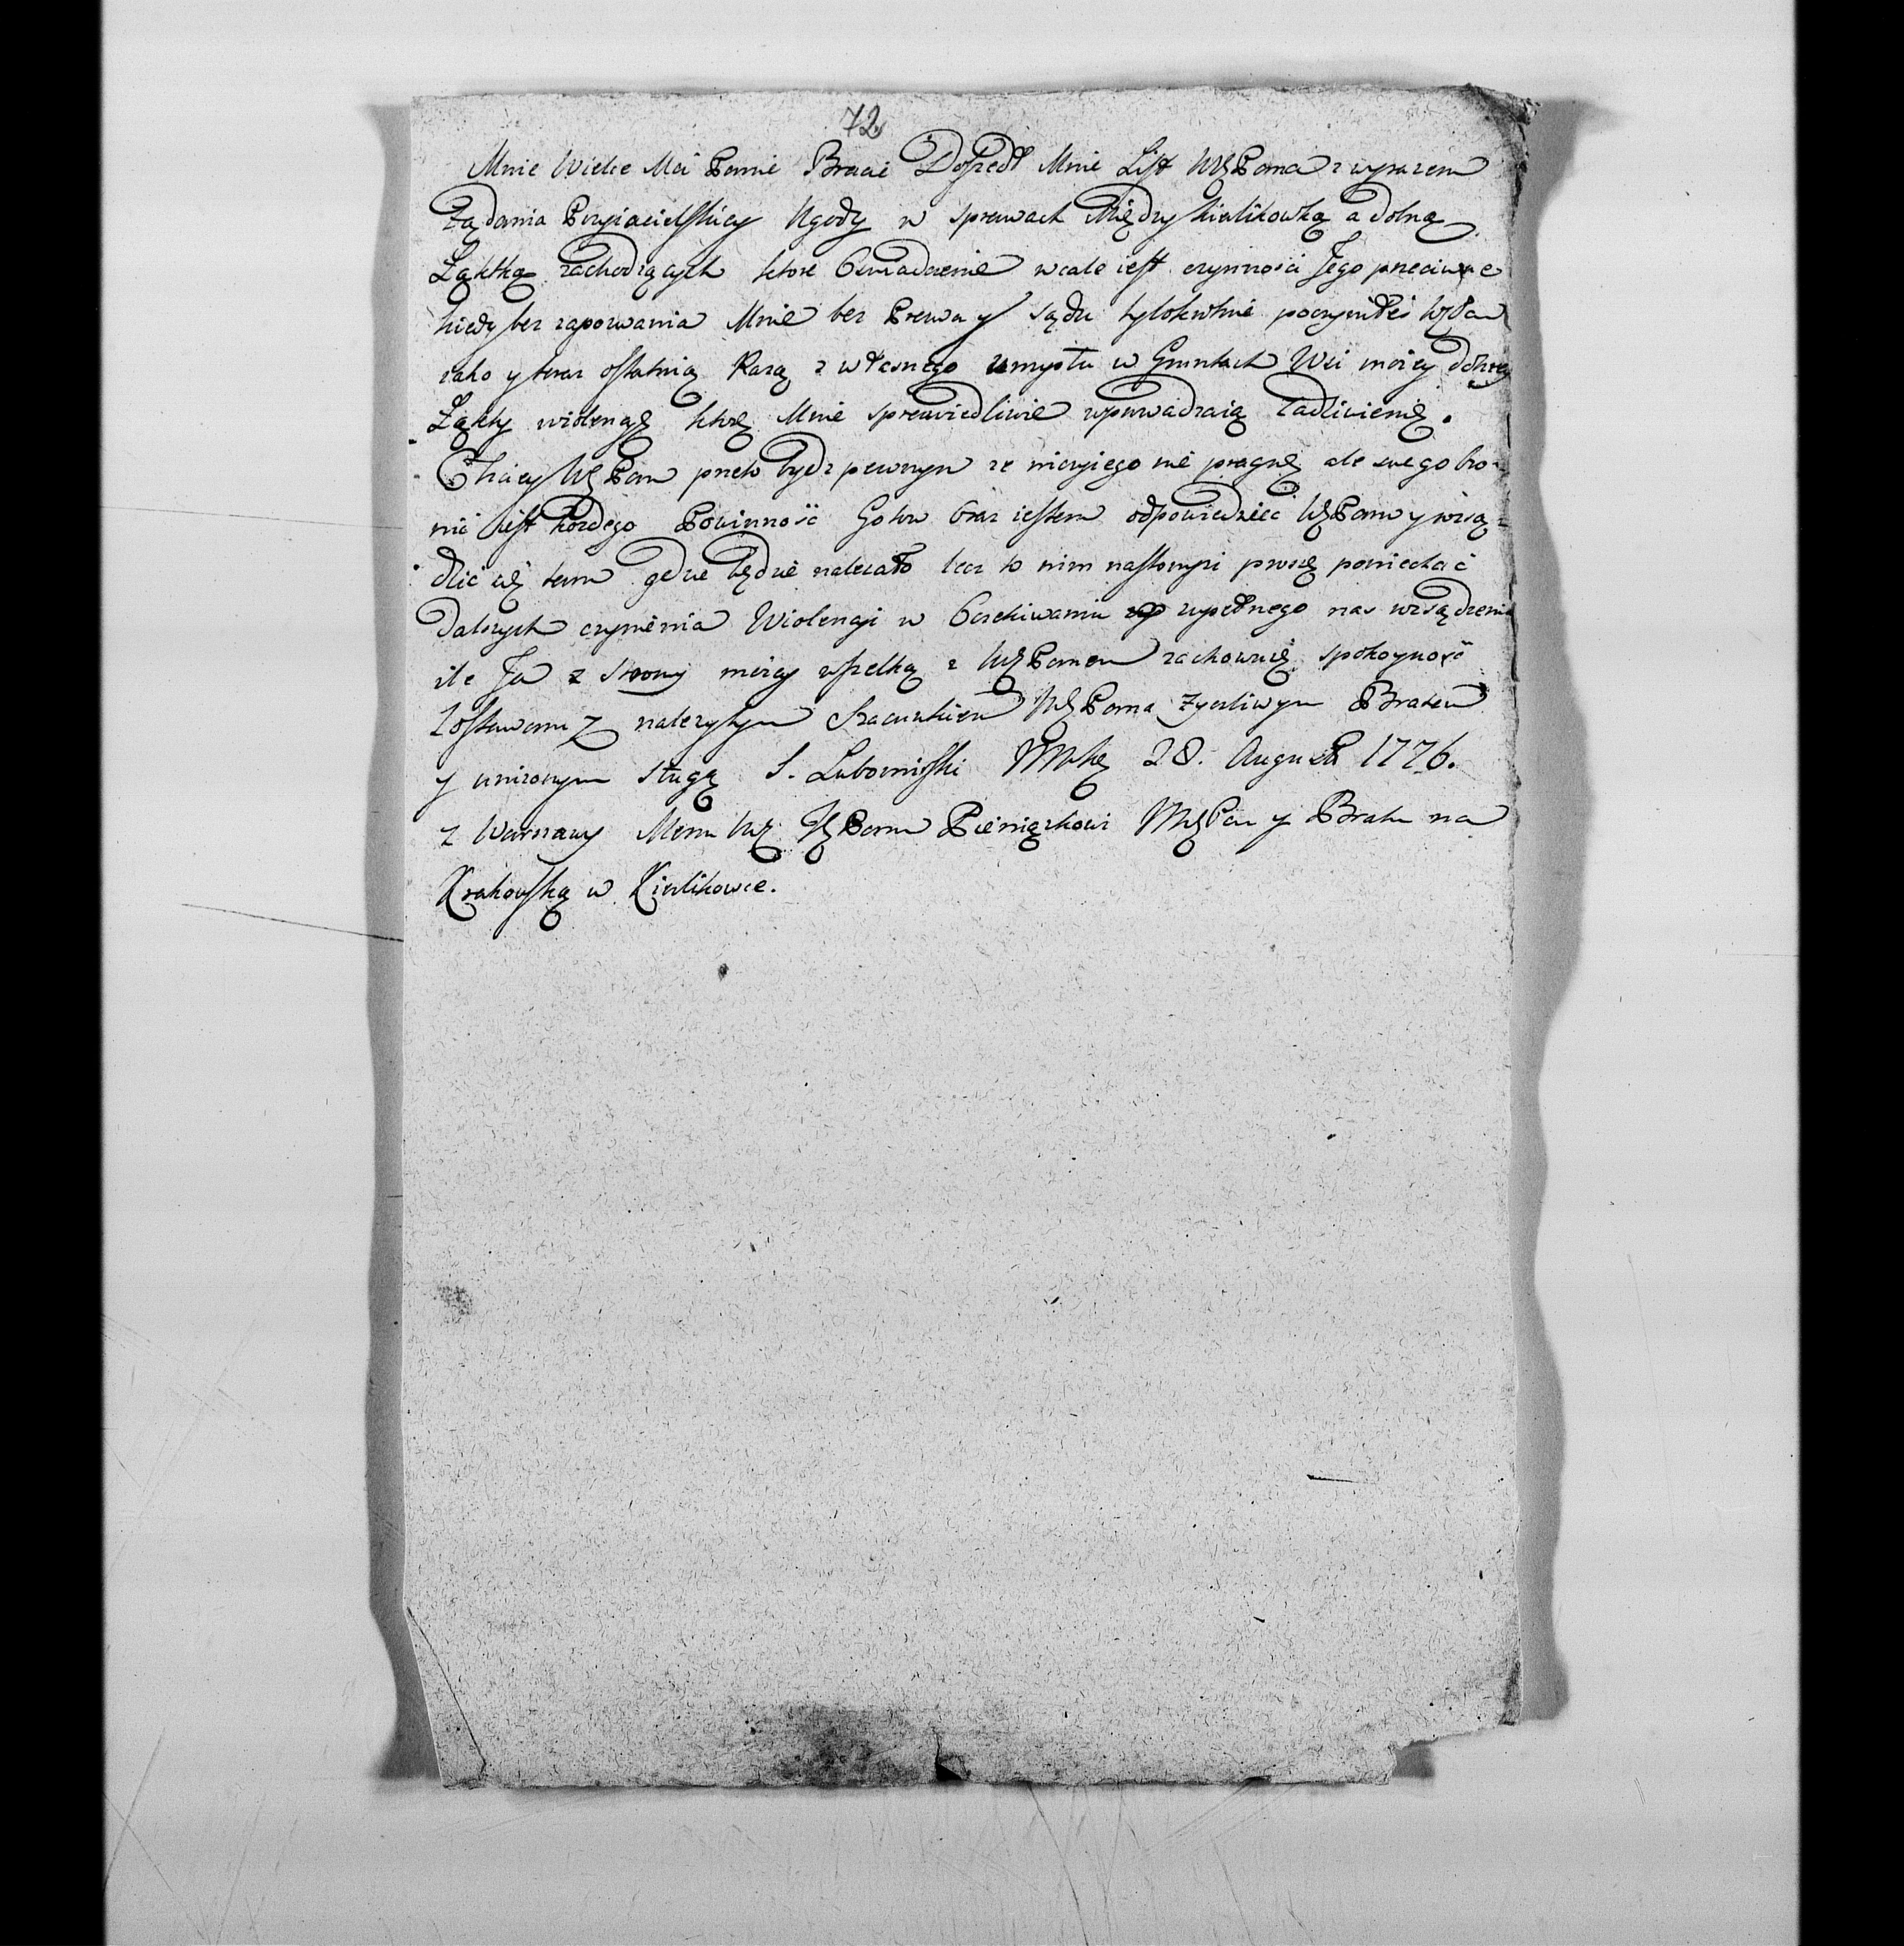 72
Mnie Wielce Mći Panie Bracie Doszedł Mnie List WMPana z wyrazem
Żądania Przyiacielskiey Ugody w sprawach Między Kierlikowką a dolną
Łąktką zachodzących ktore Oswiadczenie wcale iest czynności Jego przeciwne
kiedy bez zapozwania Mnie bez Prawa y sądu tylokrotnie poczyniłeś WPan
iako y teraz ostatnią Razą z własnego umysłu w Gruntach Wsi moiey dolney
Łąkty wiolencyę ktorę Mnie sprawiedliwie wprowadzaią zadziwienię.
Chciey WMPan przeto bydz pewnym ze niczyiego nie pragnę ale swego bro-
nić iest kozdego Powinność Gotow Oraz iestem odpowiedzieć WMPanu y rozsą-
dzić się tam gdzie będzie nalezało lecz to nim nastompi proszę poniechać
dalszych czynienia Wiolencyi w Oczekiwaniu zupełnego nas rozsądzenia
ile Ja z strony moiey wszelką z WMPanem zachownię spokoyność
Zostawam z nalezytym Szacunkiem WMPana Zyczliwym Bratem
y unizonym sługą S. Lubomirski MWKę 28. Augusta 1776.
z Warszawy Memu WM Panu Pieniązkowi MWPanu y Bratu na
Krakowską w Kierlikowce.